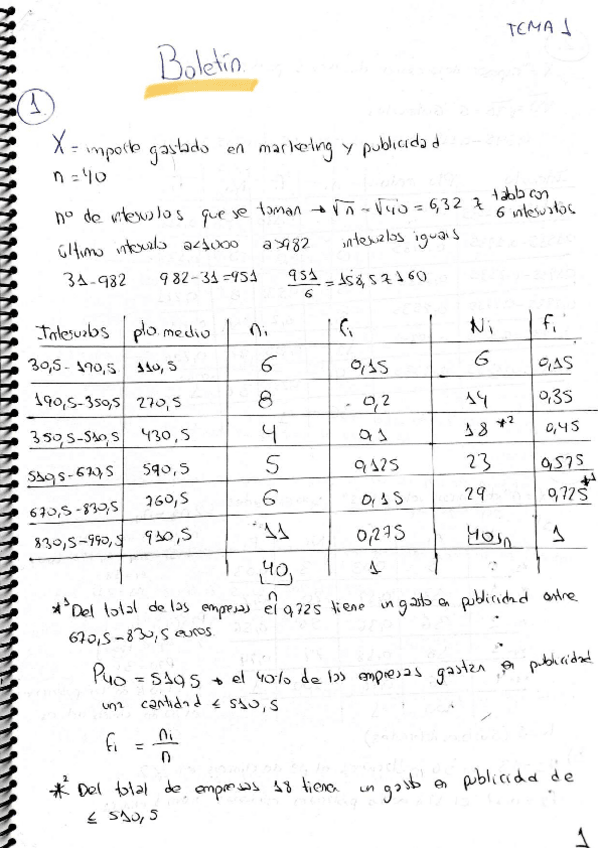 TEMA 1
Boletín
1
X = importe gastado en marketing y publicidad
n = 40
nº de intervalos que se toman → √n = √40 = 6,32 ≈ tabla con 6 intervalos
último intervalo a<1000 a>982 intervalos iguais
31-982 982-31=951 951/6 = 158,5 ≈ 160
Intervalos pto medio ni fi Ni Fi
30,5-190,5 110,5 6 0,15 6 0,15
190,5-350,5 270,5 8 0,2 14 0,35
350,5-510,5 430,5 4 0,1 18 *2 0,45
510,5-670,5 590,5 5 0,125 23 0,575
670,5-830,5 760,5 6 0,15 29 0,725 *1
830,5-990,5 910,5 11 0,275 40 n 1
40 1
n
*1 Del total de las empresas el 0,725 tiene un gasto en publicidad entre
670,5-830,5 euros.
P40 = 510,5 → el 40% de las empresas gastan en publicidad
una cantidad ≤ 510,5
fi = ni/n
*2 Del total de empresas 18 tienen un gasto en publicidad de
≤ 510,5
1